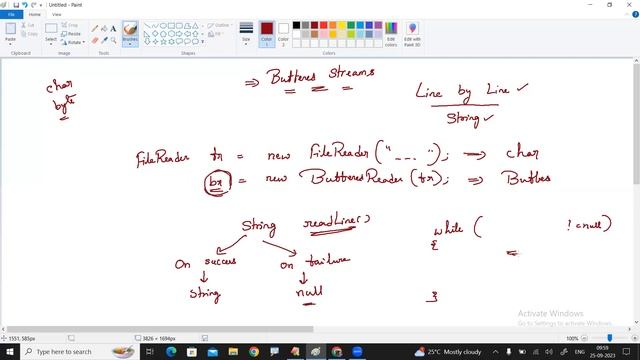 Untitled - Paint
File Home View
Paste
Cut
Copy
Clipboard
Select
Crop
Resize
Rotate
Image
Tools
Brushes
Shapes
Outline
Fill
Size
Color 1
Color 2
Colors
Edit colors
Edit with Paint 3D
char
byte
⇒ Buffered Streams
Line by Line ✓
String ✓
FileReader fr = new FileReader("----"); → char
br = new BufferedReader(fr); ⇒ Buffer
String readLine()
while ( != null)
{
On success
on failure
String
null
}
Activate Windows
Go to Settings to activate Windows.
1551, 585px
3826 × 1694px
100%
Type here to search
25°C Mostly cloudy
ENG
09:59
25-09-2023